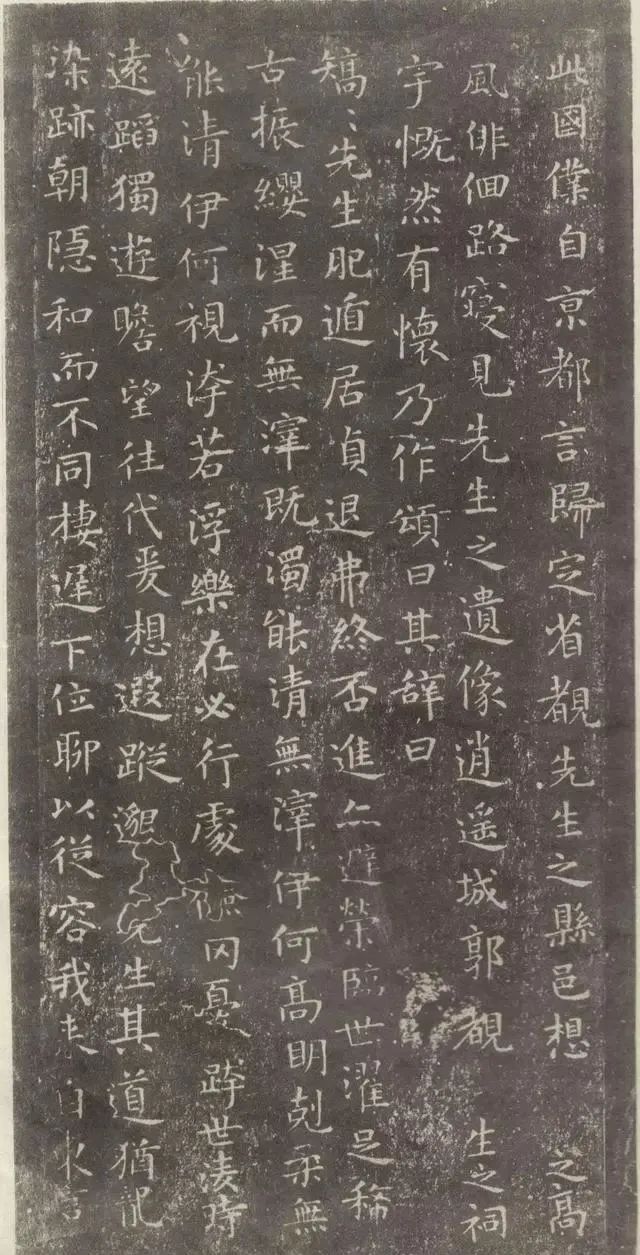 此國僕自京都言歸定省覩先生之縣邑想之高
風俳佪路寢見先生之遺像逍遥城郭覩生之祠
宇慨然有懷乃作頌曰其辭曰
矯〻先生肥遁居貞退弗終否進亦避榮臨世濯足稀
古振纓涅而無滓既濁能清無滓伊何高明剋柔無
能清伊何視洿若浮樂在必行處儉罔憂跨世淩時
遠蹈獨遊瞻望往代爰想遐蹤邈先生其道猶龍
染跡朝隱和而不同棲遲下位聊以從容我来自東言